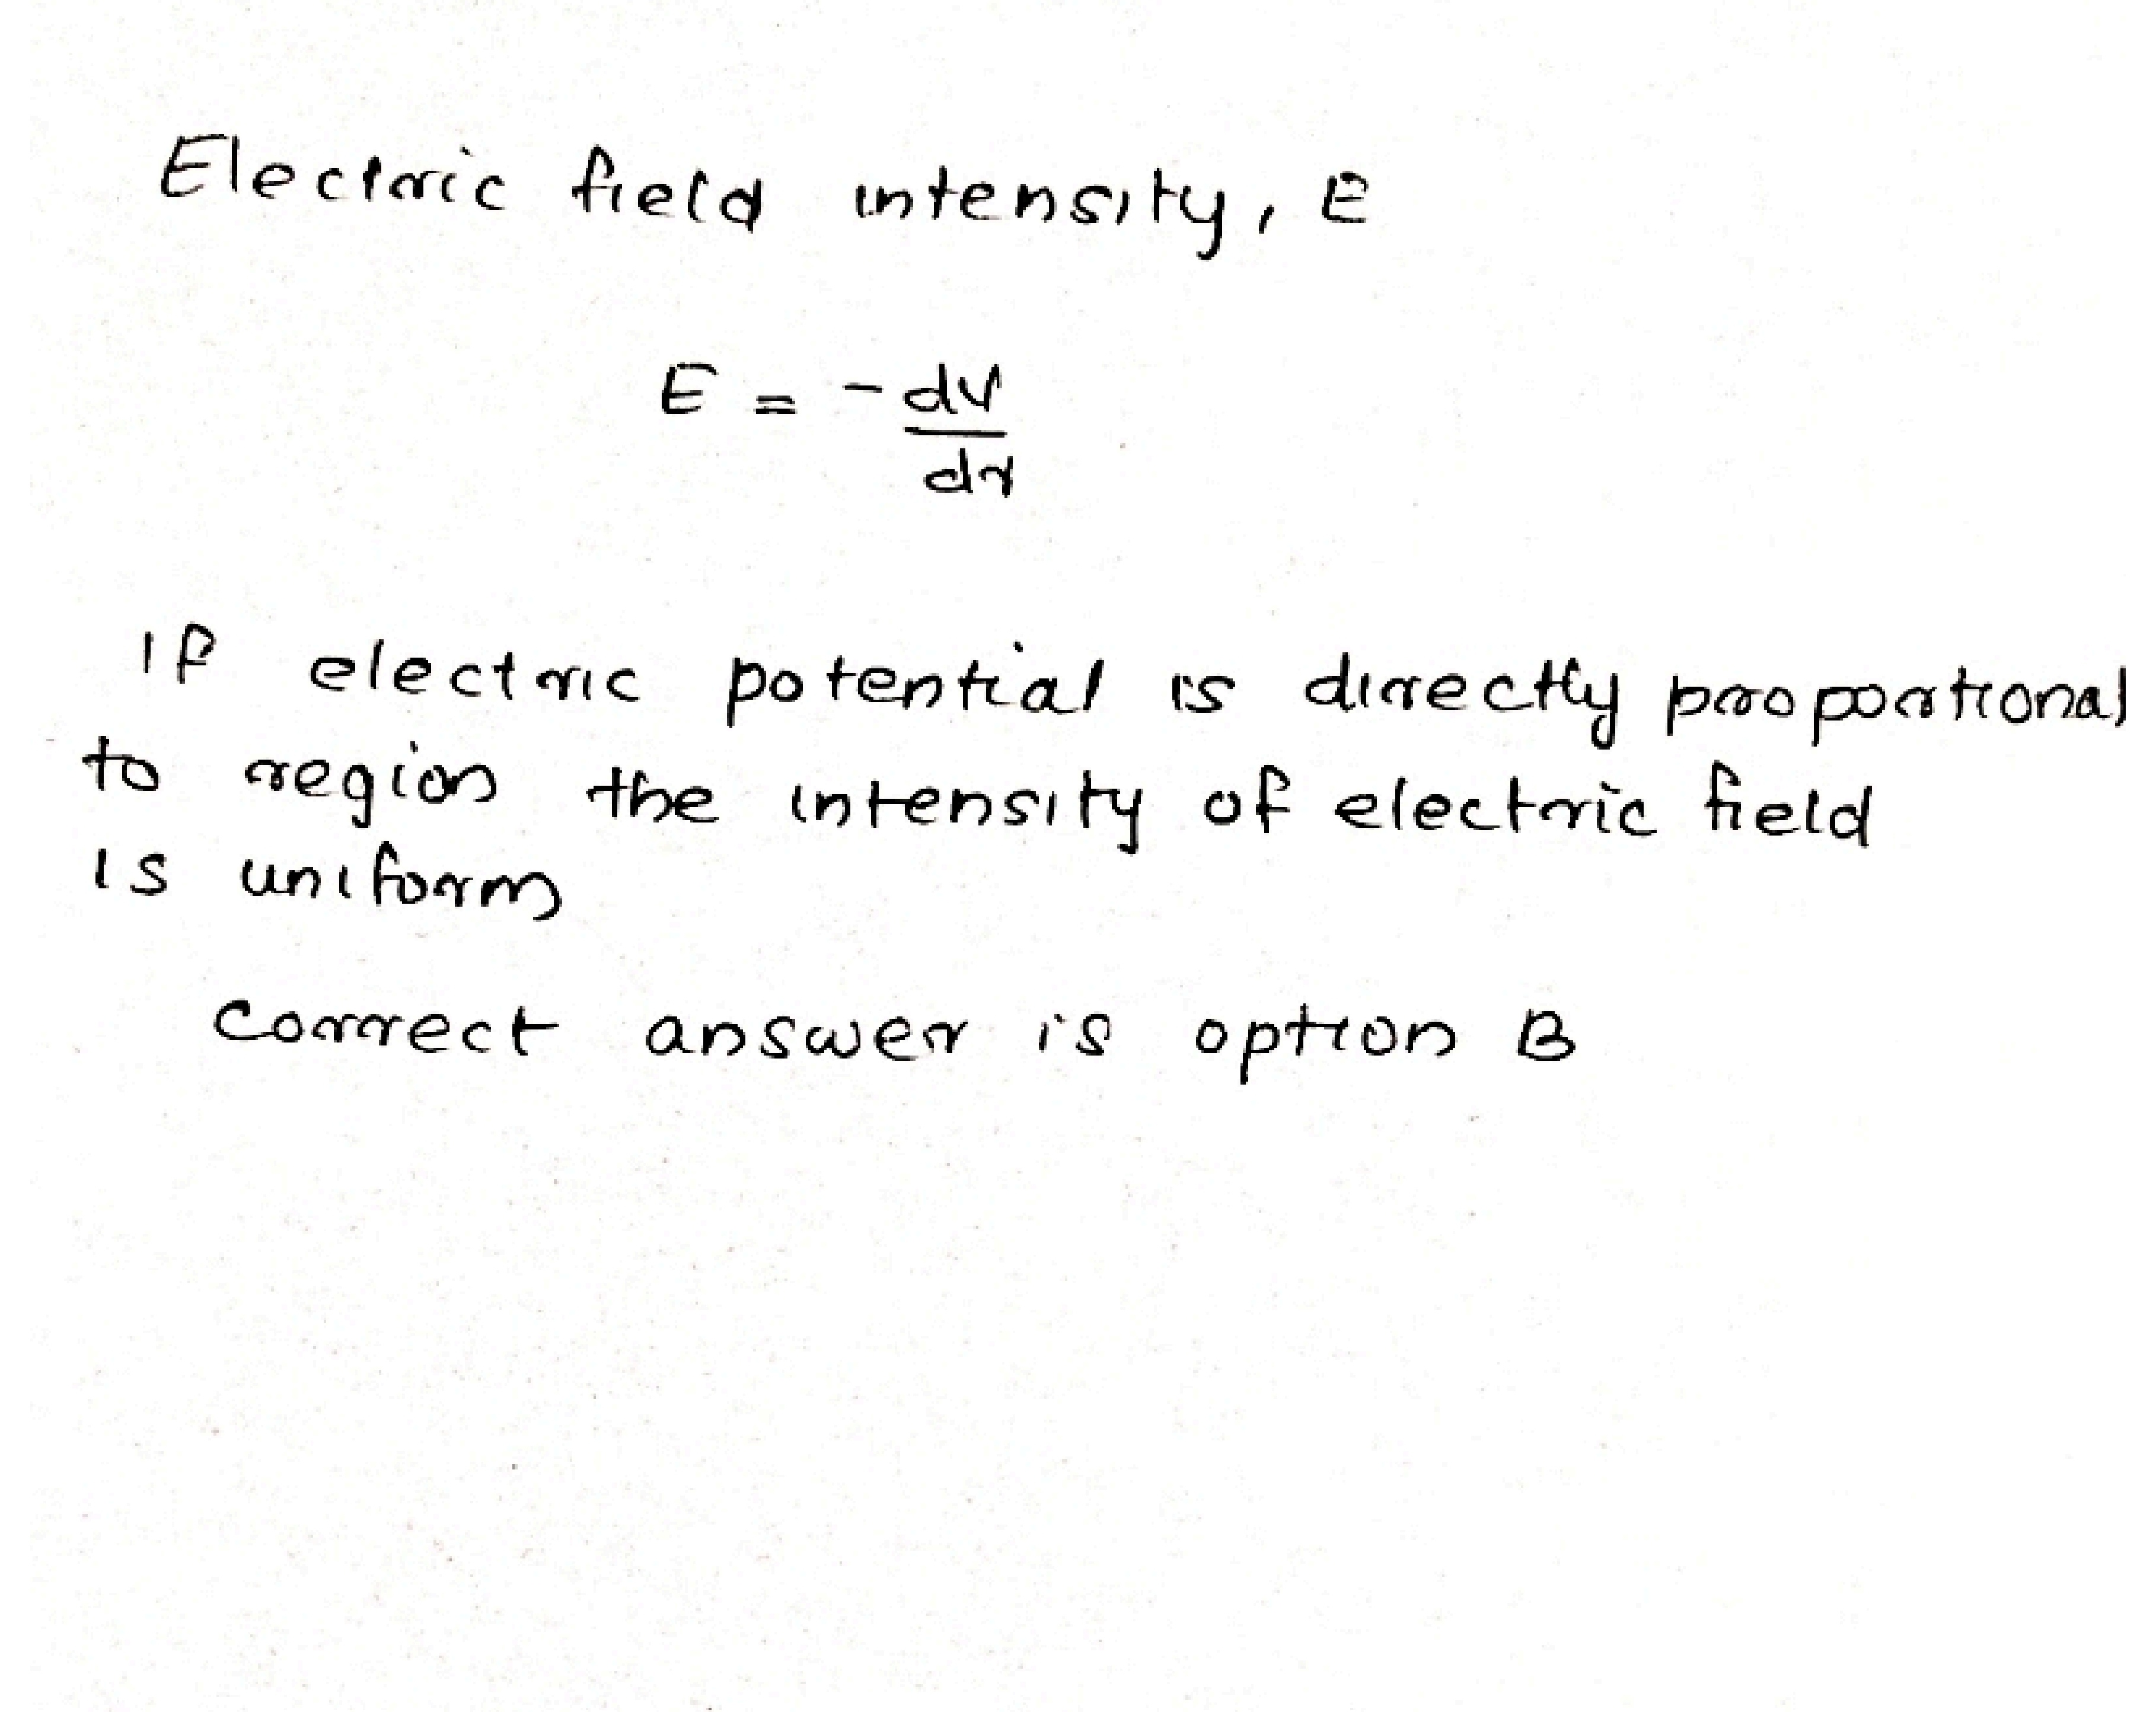 Electric field intensity, E
E = -dV/dr
If electric potential is directly proportional
to region the intensity of electric field
is uniform
correct answer is option B